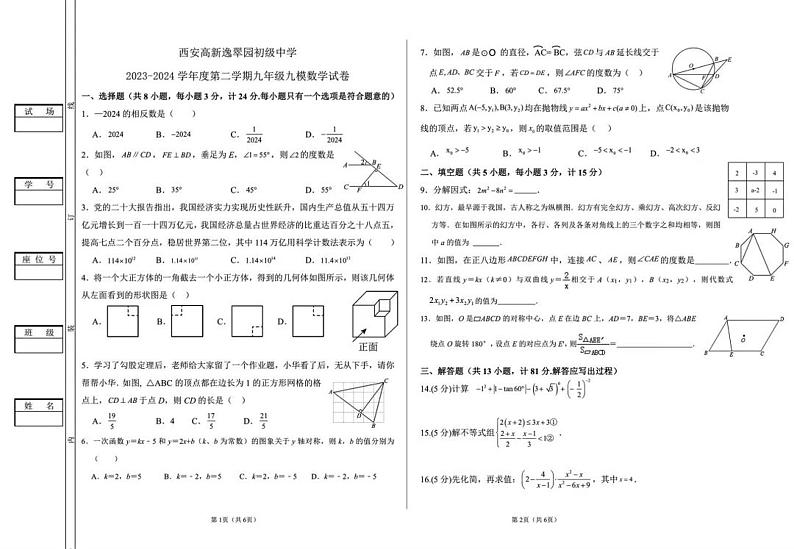 西安高新逸翠园初级中学
2023-2024 学年度第二学期九年级九模数学试卷
一、选择题（共 8 小题，每小题 3 分，计 24 分,每小题只有一个选项是符合题意的）
1. —2024 的相反数是（ ）
A．2024 B．-2024 C．1/2024 D．-1/2024
2．如图，AB∥CD，FE⊥BD，垂足为 E，∠1=55°，则∠2的度数是
（ ）
A．25° B．35° C．45° D．55°
3．党的二十大报告指出，我国经济实力实现历史性跃升，国内生产总值从五十四万
亿元增长到一百一十四万亿元，我国经济总量占世界经济的比重达百分之十八点五，
提高七点二个百分点，稳居世界第二位，其中 114 万亿用科学计数法表示为（ ）
A．114×10¹² B．1.14×10¹⁵ C．1.14×10¹⁴ D．11.4×10¹³
4．将一个大正方体的一角截去一个小正方体，得到的几何体如图所示，则该几何体
从左面看到的形状图是（ ）
A． B． C． D．
正面
5．学习了勾股定理后，老师给大家留了一个作业题，小华看了后，无从下手，请你
帮帮小华. 如图, △ABC 的顶点都在边长为 1 的正方形网格的格
点上，CD⊥AB 于点 D，则 CD 的长是（ ）
A．19/5 B．4 C．17/5 D．21/5
6．一次函数 y＝kx﹣5 和 y＝2x+b（k、b 为常数）的图象关于 y 轴对称，则 k，b 的值分别为
（ ）
A．k＝2，b＝5 B．k＝﹣2，b＝5 C．k＝2，b＝﹣5 D．k＝﹣2，b＝﹣5
第 1页（共 6页）
7．如图，AB 是⊙O 的直径，AC=BC，弦 CD 与 AB 延长线交于
点 E, AD、BC 交于 F，若 CD=DE，则∠AFC的度数为（ ）
A．52.5° B．60° C．67.5° D．75°
8．已知两点 A(-5,y₁),B(3,y₂) 均在抛物线 y=ax²+bx+c(a≠0)上，点 C(x₀,y₀) 是该抛物
线的顶点，若 y₁>y₂≥y₀，则 x₀的取值范围是（ ）
A．x₀>-5 B．x₀>-1 C．-5<x₀<-1 D．-2<x₀<3
二、填空题（共 5 小题，每小题 3 分，计 15 分）
9．分解因式：2m²-8n²=______．
10．幻方，最早源于我国，古人称之为纵横图．幻方有完全幻方、乘幻方、高次幻方、反幻
方等．在如图所示的幻方中，各行、各列及各条对角线上的三个数字之和均相等，则图
中 a 的值为 ______．
2 -3 4
3 a-2 -1
-2 5 0
11．如图，在正八边形 ABCDEFGH 中，连接 AC 、AE，则∠CAE 的度数是________．
12．若直线 y＝kx（k≠0）与双曲线 y=2/x 相交于 A（x₁，y₁），B（x₂，y₂），则代数式
2x₁y₂+3x₂y₁ 的值为________．
13．如图，O 是▱ABCD 的对称中心，点 E 在边 BC 上，AD＝7，BE＝3，将△ABE
绕点 O 旋转 180°，设点 E 的对应点为 E′，则 S△AEE′/S▱ABCD=________．
三、解答题（共 13 小题，计 81 分.解答应写出过程）
14.(5分)计算 -1²+|1-tan60°|-(3+√3)⁰+(-1/2)⁻²
15.(5分)解不等式组{2(x+2)≤3x+3① (2+x)/2-(x-1)/3<1②．
16.(5分)先化简，再求值：(2-4/(x-1))·(x²-x)/(x²-6x+9)，其中 x=4．
第 2页（共 6页）
试 场
学 号
座 位 号
班 级
姓 名
线
订
装
内